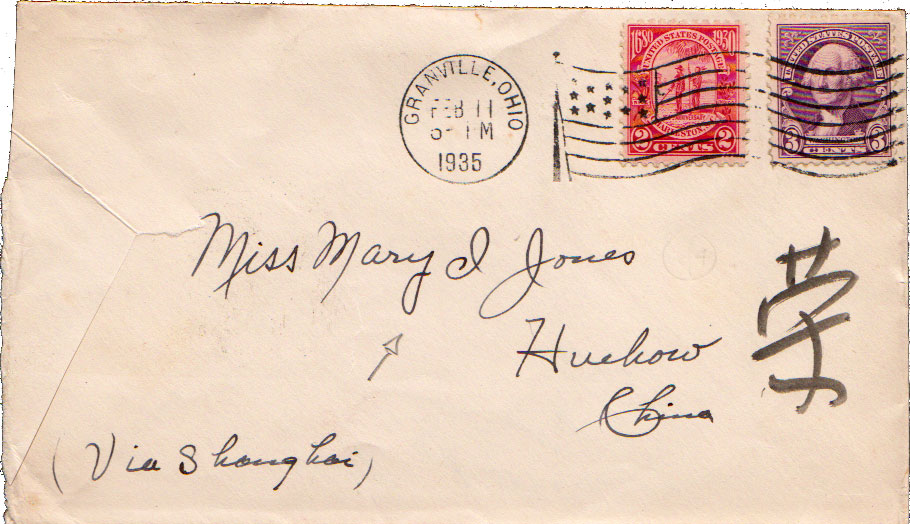 1680 1930
UNITED STATES POSTAGE
CHARLESTON, S.C.
2 CENTS 2
UNITED STATES POSTAGE
3 3
GRANVILLE, OHIO
FEB 11
1935
Miss Mary I Jones
Huchow
China
(Via Shanghai)